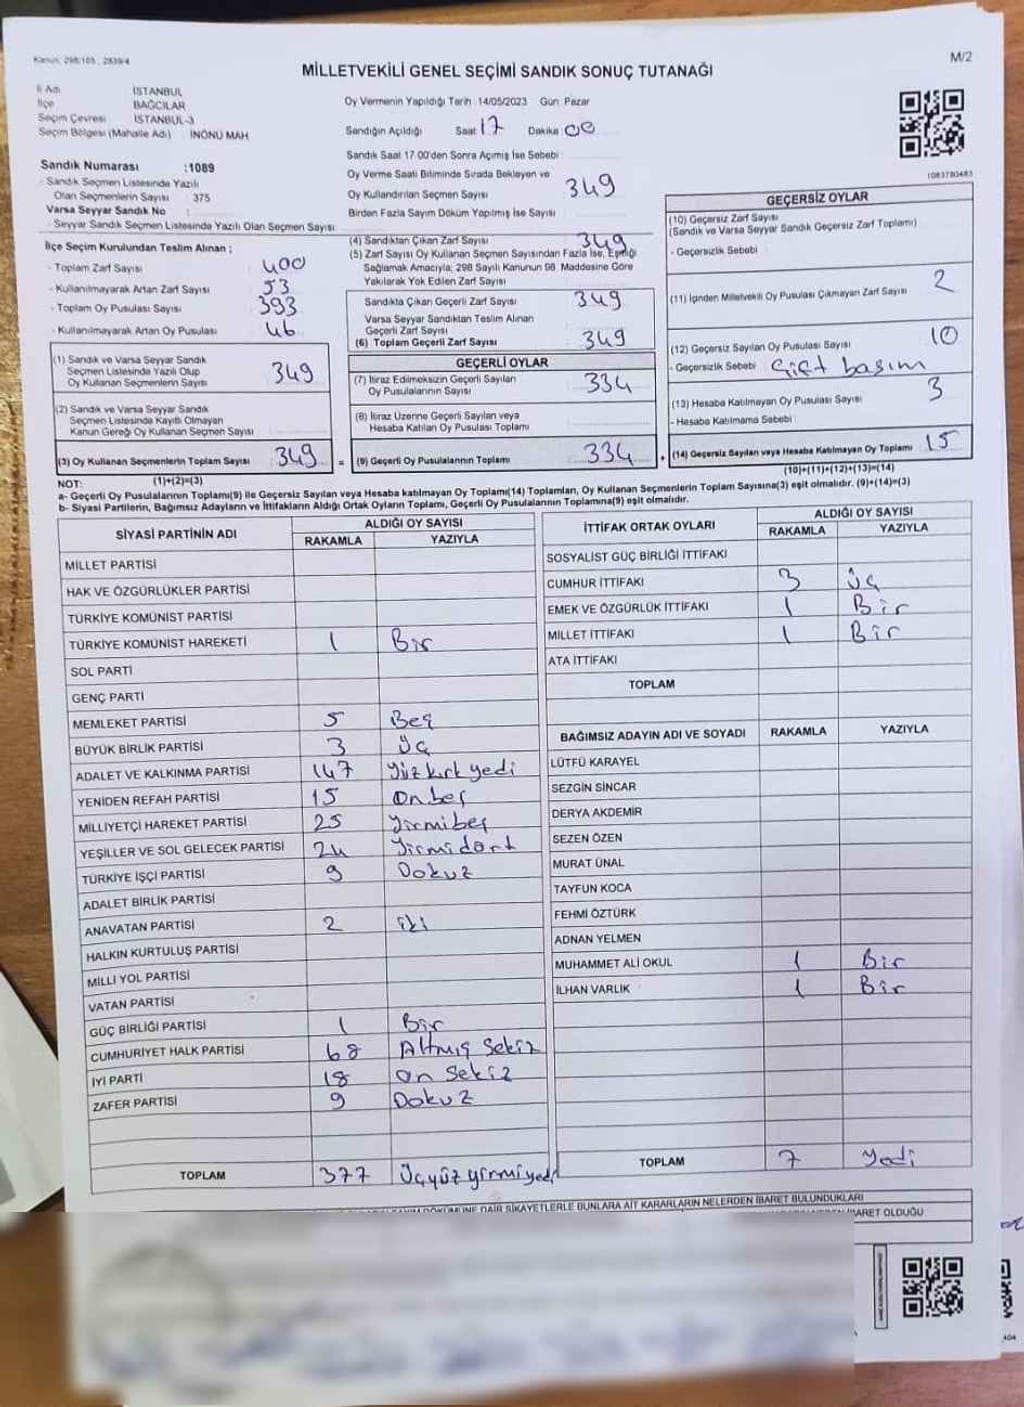 Kanun: 298/105, 2839/4
M/2
MİLLETVEKİLİ GENEL SEÇİMİ SANDIK SONUÇ TUTANAĞI
İl Adı İSTANBUL
İlçe BAĞCILAR
Seçim Çevresi İSTANBUL-3
Seçim Bölgesi (Mahalle Adı) İNÖNÜ MAH
Sandık Numarası :1089
- Sandık Seçmen Listesinde Yazılı
Olan Seçmenlerin Sayısı 375
Varsa Seyyar Sandık No :
- Seyyar Sandık Seçmen Listesinde Yazılı Olan Seçmen Sayısı
Oy Vermenin Yapıldığı Tarih 14/05/2023 Gün: Pazar
Sandığın Açıldığı Saat 17 Dakika 00
Sandık Saat 17:00'den Sonra Açılmış İse Sebebi :
Oy Verme Saati Bitiminde Sırada Bekleyen ve
Oy Kullandırılan Seçmen Sayısı 349
Birden Fazla Sayım Döküm Yapılmış İse Sayısı
1083780483
İlçe Seçim Kurulundan Teslim Alınan ;
- Toplam Zarf Sayısı 400
- Kullanılmayarak Artan Zarf Sayısı 53
- Toplam Oy Pusulası Sayısı 393
- Kullanılmayarak Artan Oy Pusulası 46
(1) Sandık ve Varsa Seyyar Sandık
Seçmen Listesinde Yazılı Olup
Oy Kullanan Seçmenlerin Sayısı 349
(2) Sandık ve Varsa Seyyar Sandık
Seçmen Listesinde Kayıtlı Olmayan
Kanun Gereği Oy Kullanan Seçmen Sayısı
(3) Oy Kullanan Seçmenlerin Toplam Sayısı 349 =
(4) Sandıktan Çıkan Zarf Sayısı 349
(5) Zarf Sayısı Oy Kullanan Seçmen Sayısından Fazla İse, Eşitliği
Sağlamak Amacıyla, 298 Sayılı Kanunun 98. Maddesine Göre
Yakılarak Yok Edilen Zarf Sayısı
Sandıkta Çıkan Geçerli Zarf Sayısı 349
Varsa Seyyar Sandıktan Teslim Alınan
Geçerli Zarf Sayısı
(6) Toplam Geçerli Zarf Sayısı 349
GEÇERLİ OYLAR
(7) İtiraz Edilmeksizin Geçerli Sayılan
Oy Pusulalarının Sayısı 334
(8) İtiraz Üzerine Geçerli Sayılan veya
Hesaba Katılan Oy Pusulası Toplamı
(9) Geçerli Oy Pusulalarının Toplamı 334 +
GEÇERSİZ OYLAR
(10) Geçersiz Zarf Sayısı
(Sandık ve Varsa Seyyar Sandık Geçersiz Zarf Toplamı)
- Geçersizlik Sebebi :
(11) İçinden Milletvekili Oy Pusulası Çıkmayan Zarf Sayısı 2
(12) Geçersiz Sayılan Oy Pusulası Sayısı 10
- Geçersizlik Sebebi Çift basım
(13) Hesaba Katılmayan Oy Pusulası Sayısı 3
- Hesaba Katılmama Sebebi :
(14) Geçersiz Sayılan veya Hesaba Katılmayan Oy Toplamı 15
NOT: (1)+(2)=(3)
(10)+(11)+(12)+(13)=(14)
a- Geçerli Oy Pusulalarının Toplamı(9) ile Geçersiz Sayılan veya Hesaba katılmayan Oy Toplamı(14) Toplamları, Oy Kullanan Seçmenlerin Toplam Sayısına(3) eşit olmalıdır. (9)+(14)=(3)
b- Siyasi Partilerin, Bağımsız Adayların ve İttifakların Aldığı Ortak Oyların Toplamı, Geçerli Oy Pusulalarının Toplamına(9) eşit olmalıdır.
SİYASİ PARTİNİN ADI ALDIĞI OY SAYISI
RAKAMLA YAZIYLA
MİLLET PARTİSİ
HAK VE ÖZGÜRLÜKLER PARTİSİ
TÜRKİYE KOMÜNİST PARTİSİ
TÜRKİYE KOMÜNİST HAREKETİ 1 Bir
SOL PARTİ
GENÇ PARTİ
MEMLEKET PARTİSİ 5 Beş
BÜYÜK BİRLİK PARTİSİ 3 Üç
ADALET VE KALKINMA PARTİSİ 147 Yüz kırk yedi
YENİDEN REFAH PARTİSİ 15 On beş
MİLLİYETÇİ HAREKET PARTİSİ 25 Yirmibeş
YEŞİLLER VE SOL GELECEK PARTİSİ 24 Yirmidört
TÜRKİYE İŞÇİ PARTİSİ 9 Dokuz
ADALET BİRLİK PARTİSİ
ANAVATAN PARTİSİ 2 iki
HALKIN KURTULUŞ PARTİSİ
MİLLİ YOL PARTİSİ
VATAN PARTİSİ
GÜÇ BİRLİĞİ PARTİSİ 1 Bir
CUMHURİYET HALK PARTİSİ 68 Altmış Sekiz
İYİ PARTİ 18 On Sekiz
ZAFER PARTİSİ 9 Dokuz
TOPLAM 377 Üçyüz yirmi yedi
İTTİFAK ORTAK OYLARI ALDIĞI OY SAYISI
RAKAMLA YAZIYLA
SOSYALİST GÜÇ BİRLİĞİ İTTİFAKI
CUMHUR İTTİFAKI 3 Üç
EMEK VE ÖZGÜRLÜK İTTİFAKI 1 Bir
MİLLET İTTİFAKI 1 Bir
ATA İTTİFAKI
TOPLAM
BAĞIMSIZ ADAYIN ADI VE SOYADI RAKAMLA YAZIYLA
LÜTFÜ KARAYEL
SEZGİN SİNCAR
DERYA AKDEMİR
SEZEN ÖZEN
MURAT ÜNAL
TAYFUN KOCA
FEHMİ ÖZTÜRK
ADNAN YELMEN
MUHAMMET ALİ OKUL 1 Bir
İLHAN VARLIK 1 Bir
TOPLAM 7 Yedi
DÖKÜMÜNE DAİR ŞİKAYETLERLE BUNLARA AİT KARARLARIN NELERDEN İBARET BULUNDUKLARI
İBARET OLDUĞU
404